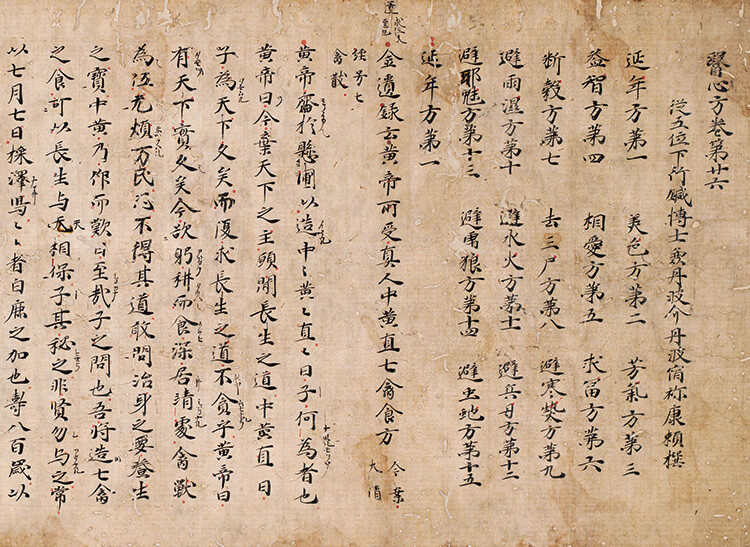 醫心方卷第廿六
従五位下行鍼博士兼丹波介丹波宿祢康頼撰
延年方第一 美色方第二 芳氣方第三
益智方第四 相愛方第五 求冨方第六
断穀方第七 去三尸方第八 避寒熱方第九
避雨濕方第十 避水火方第十一 避兵刃方第十二
避耶魅方第十三 避虎狼方第十四 避虫虵方第十五
延年方第一
金遺録云黄帝所受真人中黄直七禽食方
大清
禽散
黄帝齋於懸圃以造中〻黄〻直〻曰子何為者也
黄帝曰今棄天下之主願聞長生之道中黄直曰
子為天下久矣而復求長生之道不貪乎黄帝曰
有天下實久矣今欲躬耕而食深居靖處禽獣
為伍无煩万民恐不得其道敢問治身之要養生
之寶中黄乃仰而歎曰至哉子之問也吾将造七禽
之食可以長生与天相保子其秘之非賢勿与之常
以七月七日採澤寫〻〻者白鹿之加也壽八百歳以